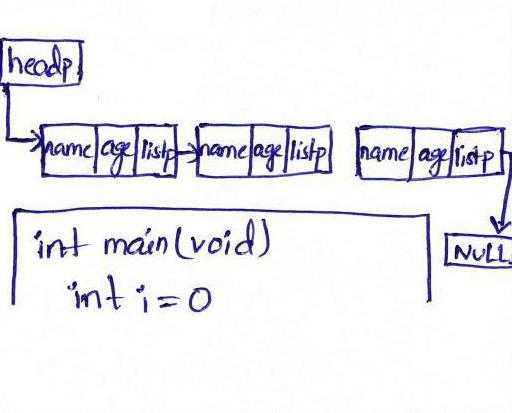 headp
name age listp name age listp name age listp
int main(void)
NULL
int i = 0